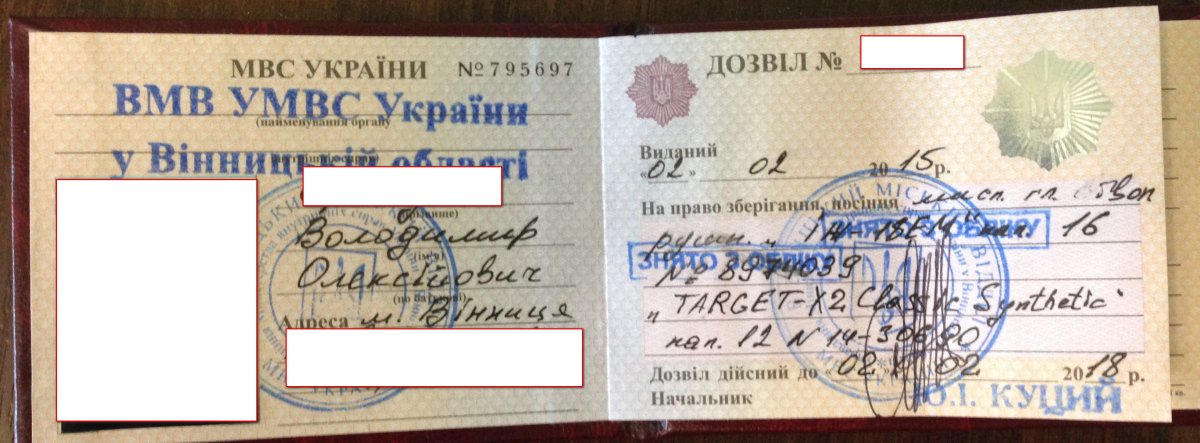 МВС УКРАЇНИ
№795697
ВМВ УМВС України
(найменування органу
у Вінницькій області
внутрішніх справ)
(прізвище)
Володимир
(ім'я)
Олексійович
(по батькові)
Адреса м. Вінниця
ДОЗВІЛ №
Виданий
«02» 02 2015р.
На право зберігання, носіння мисл. гл. ствол
рушн. „ кал. 16
ЗНЯТО З ОБЛІКУ
ЗНЯТО З ОБЛІКУ
№ 8974039
„TARGET-X2 Classic Synthetic"
кал. 12 N 14-30690
Дозвіл дійсний до «02» 02 2018 р.
Начальник Ю.І. КУЦИЙ